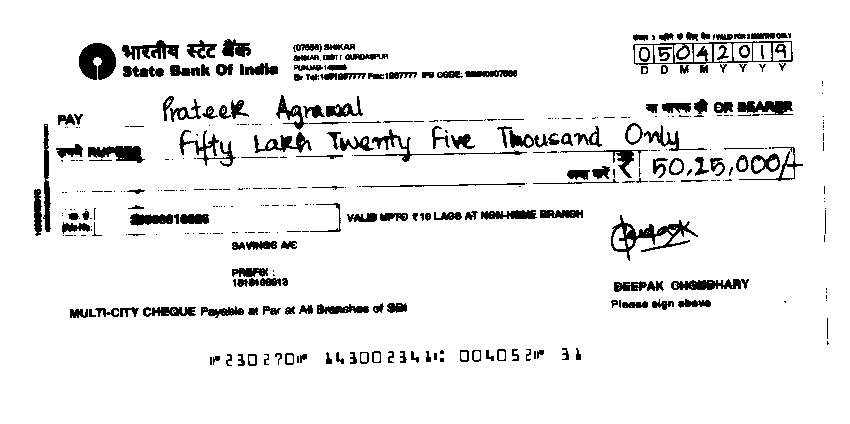 भारतीय स्टेट बैंक
State Bank Of India
(07556) SHIKAR
SHIKAR, DIST: GURDASPUR
VALID FOR 3 MONTHS ONLY
05042019
D D M M Y Y Y Y
PAY Prateek Agrawal या धारक को OR BEARER
रुपये RUPEES Fifty Lakh Twenty Five Thousand Only
अदा करें ₹ 50,25,000/-
VALID UPTO ₹ 10 LACS AT NON-HOME BRANCH
SAVINGS A/C
PREFIX :
DEEPAK CHOUDHARY
Please sign above
MULTI-CITY CHEQUE Payable at Par at All Branches of SBI
⑈230270⑈ 143002341⑆ 004052⑈ 31